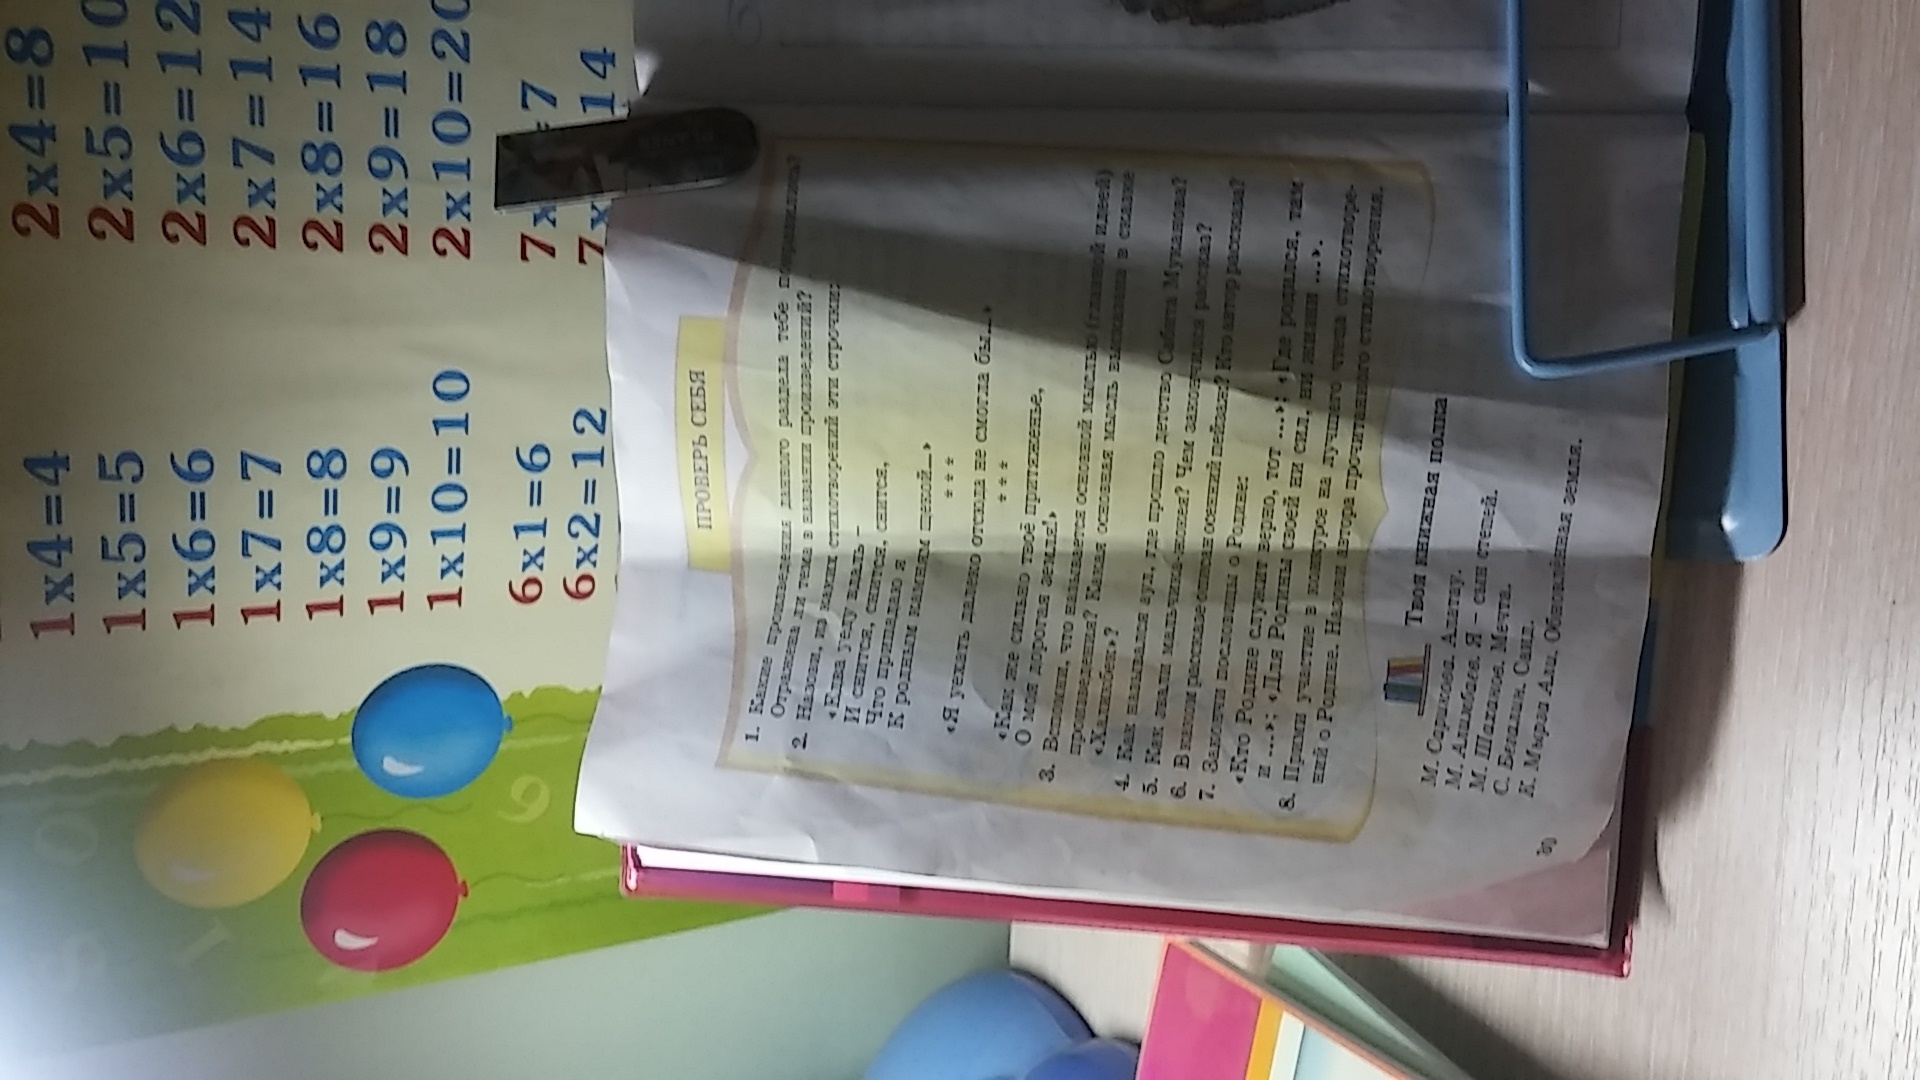 2x4=8
2x5=10
2x6=12
2x7=14
2x8=16
2x9=18
2x10=20
7x =7
7x 14
1x4=4
1x5=5
1x6=6
1x7=7
1x8=8
1x9=9
1x10=10
6x1=6
6x2=12
ПРОВЕРЬ СЕБЯ
1. Какие произведения данного раздела тебе понравились?
Отражена ли тема в названии произведений?
2. Назови, из каких стихотворений эти строчки:
«Едва уеду вдаль –
И снится, снится, снится, снится,
Что припадаю я
К родным камням щекой...»
* * *
«Я уехать далеко отсюда не смогла бы...»
* * *
«Как же сильно твоё притяженье,
О моя дорогая земля!»
3. Вспомни, что называется основной мыслью (главной идеей)
произведения? Какая основная мысль высказана в сказке
«Хашыбек»?
4. Как назывался аул, где прошло детство Сабита Муканова?
5. Как звали мальчика-лесная? Чем закончился рассказ?
6. В каком рассказе описан осенний пейзаж? Кто автор рассказа?
7. Закончи пословицы о Родине:
«Кто Родине служит верно, тот ...»; «Где родился, там
и ...»; «Для Родины своей ни сил, ни жизни ...».
8. Прими участие в конкурсе на лучшего чтеца стихотворе-
ний о Родине. Назови автора прочитанного стихотворения.
Твоя книжная полка
М. Серикова. Алатау.
М. Алимбаев. Я – сын степей.
М. Шаханов. Мечта.
С. Бегалин. Саш.
К. Мырза Али. Обновлённая земля.